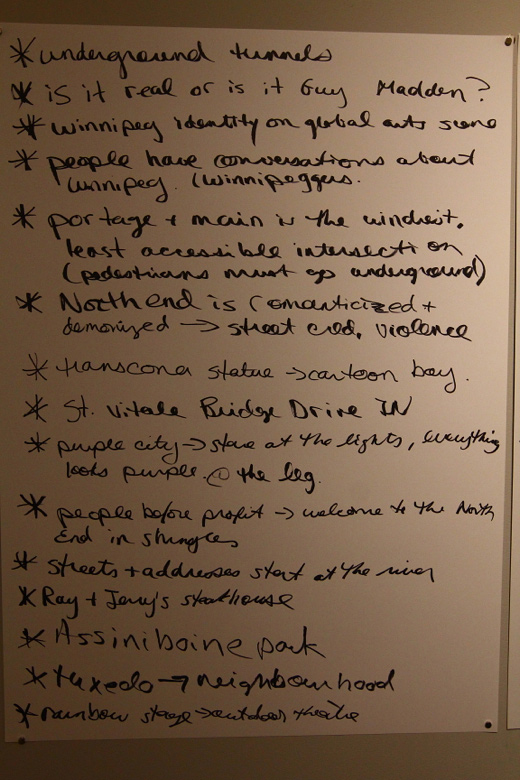 * underground tunnels
* is it real or is it Guy Madden?
* Winnipeg identity on global arts scene
* people have conversations about
Winnipeg. (Winnipeggers.
* portage + main is the windiest,
least accessible intersection
(pedestrians must go underground)
* North end is romanticized +
demonized → street cred, violence
* transcona statue → cartoon boy.
* St. Vitale Bridge Drive IN
* purple city → stare at the lights, everything
looks purple @ the leg.
* people before profit → welcome to the North
End in shingles
* streets + addresses start at the river
* Ray + Jerry's steakhouse
* Assiniboine park
* tuxedo → neighbourhood
* rainbow stage → outdoor theatre